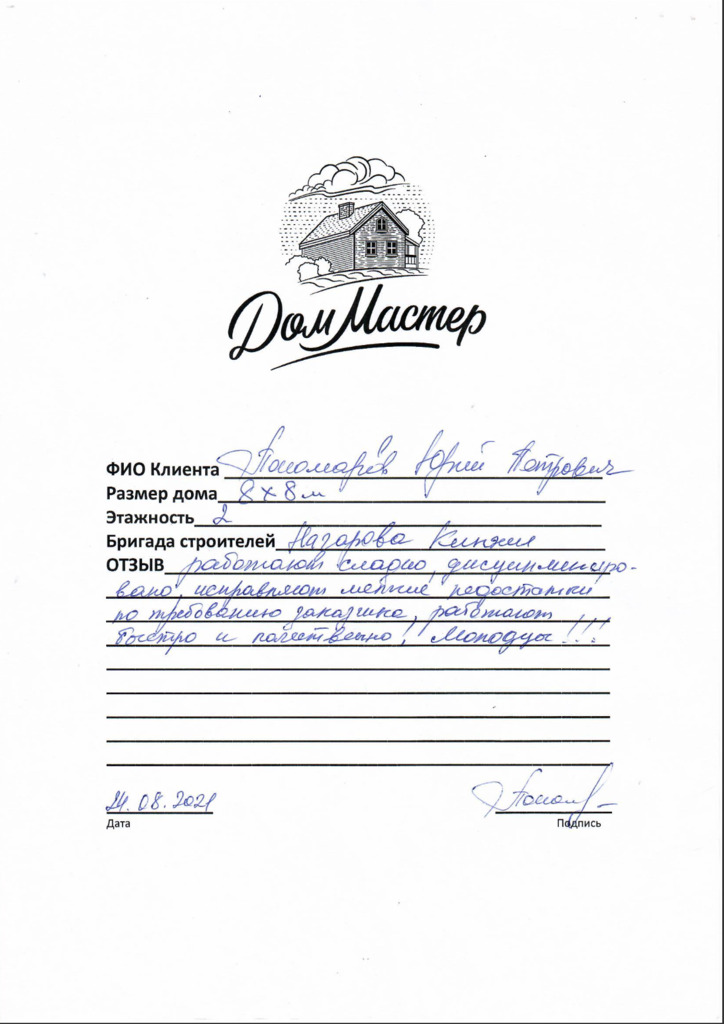 ДомМастер
ФИО Клиента Пономарёв Юрий Петрович
Размер дома 8х8м
Этажность 2
Бригада строителей Назарова
ОТЗЫВ работают сладно, дисциплиниро-
вано, исправляют мелкие недостатки
по требованию заказчика, работают
быстро и качественно! Молодцы!!!
24.08.2021
Дата
Подпись